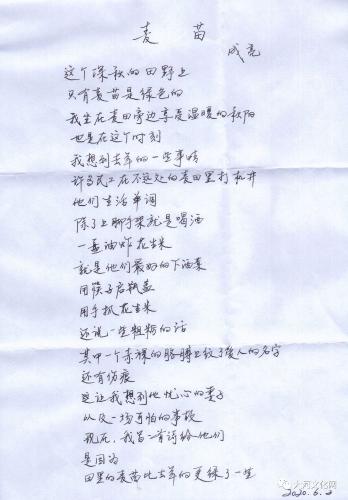 麦苗
成亮
这个深秋的田野上
只有麦苗是绿色的
我坐在麦田旁边享受温暖的秋阳
也是在这个时刻
我想到去年的一些事情
许多民工在不远处的麦田里打机井
他们生活单调
除了上脚手架就是喝酒
一盘油炸花生米
就是他们最好的下酒菜
用筷子启瓶盖
用手抓花生米
还说一些粗粝的话
其中一个赤裸的胳膊上纹了爱人的名字
还有伤痕
这让我想到他忧心的妻子
以及一场可怕的事故
现在，我写一首诗给他们
是因为
田里的麦苗比去年的更绿了一些
2020.6.2
大河文化网